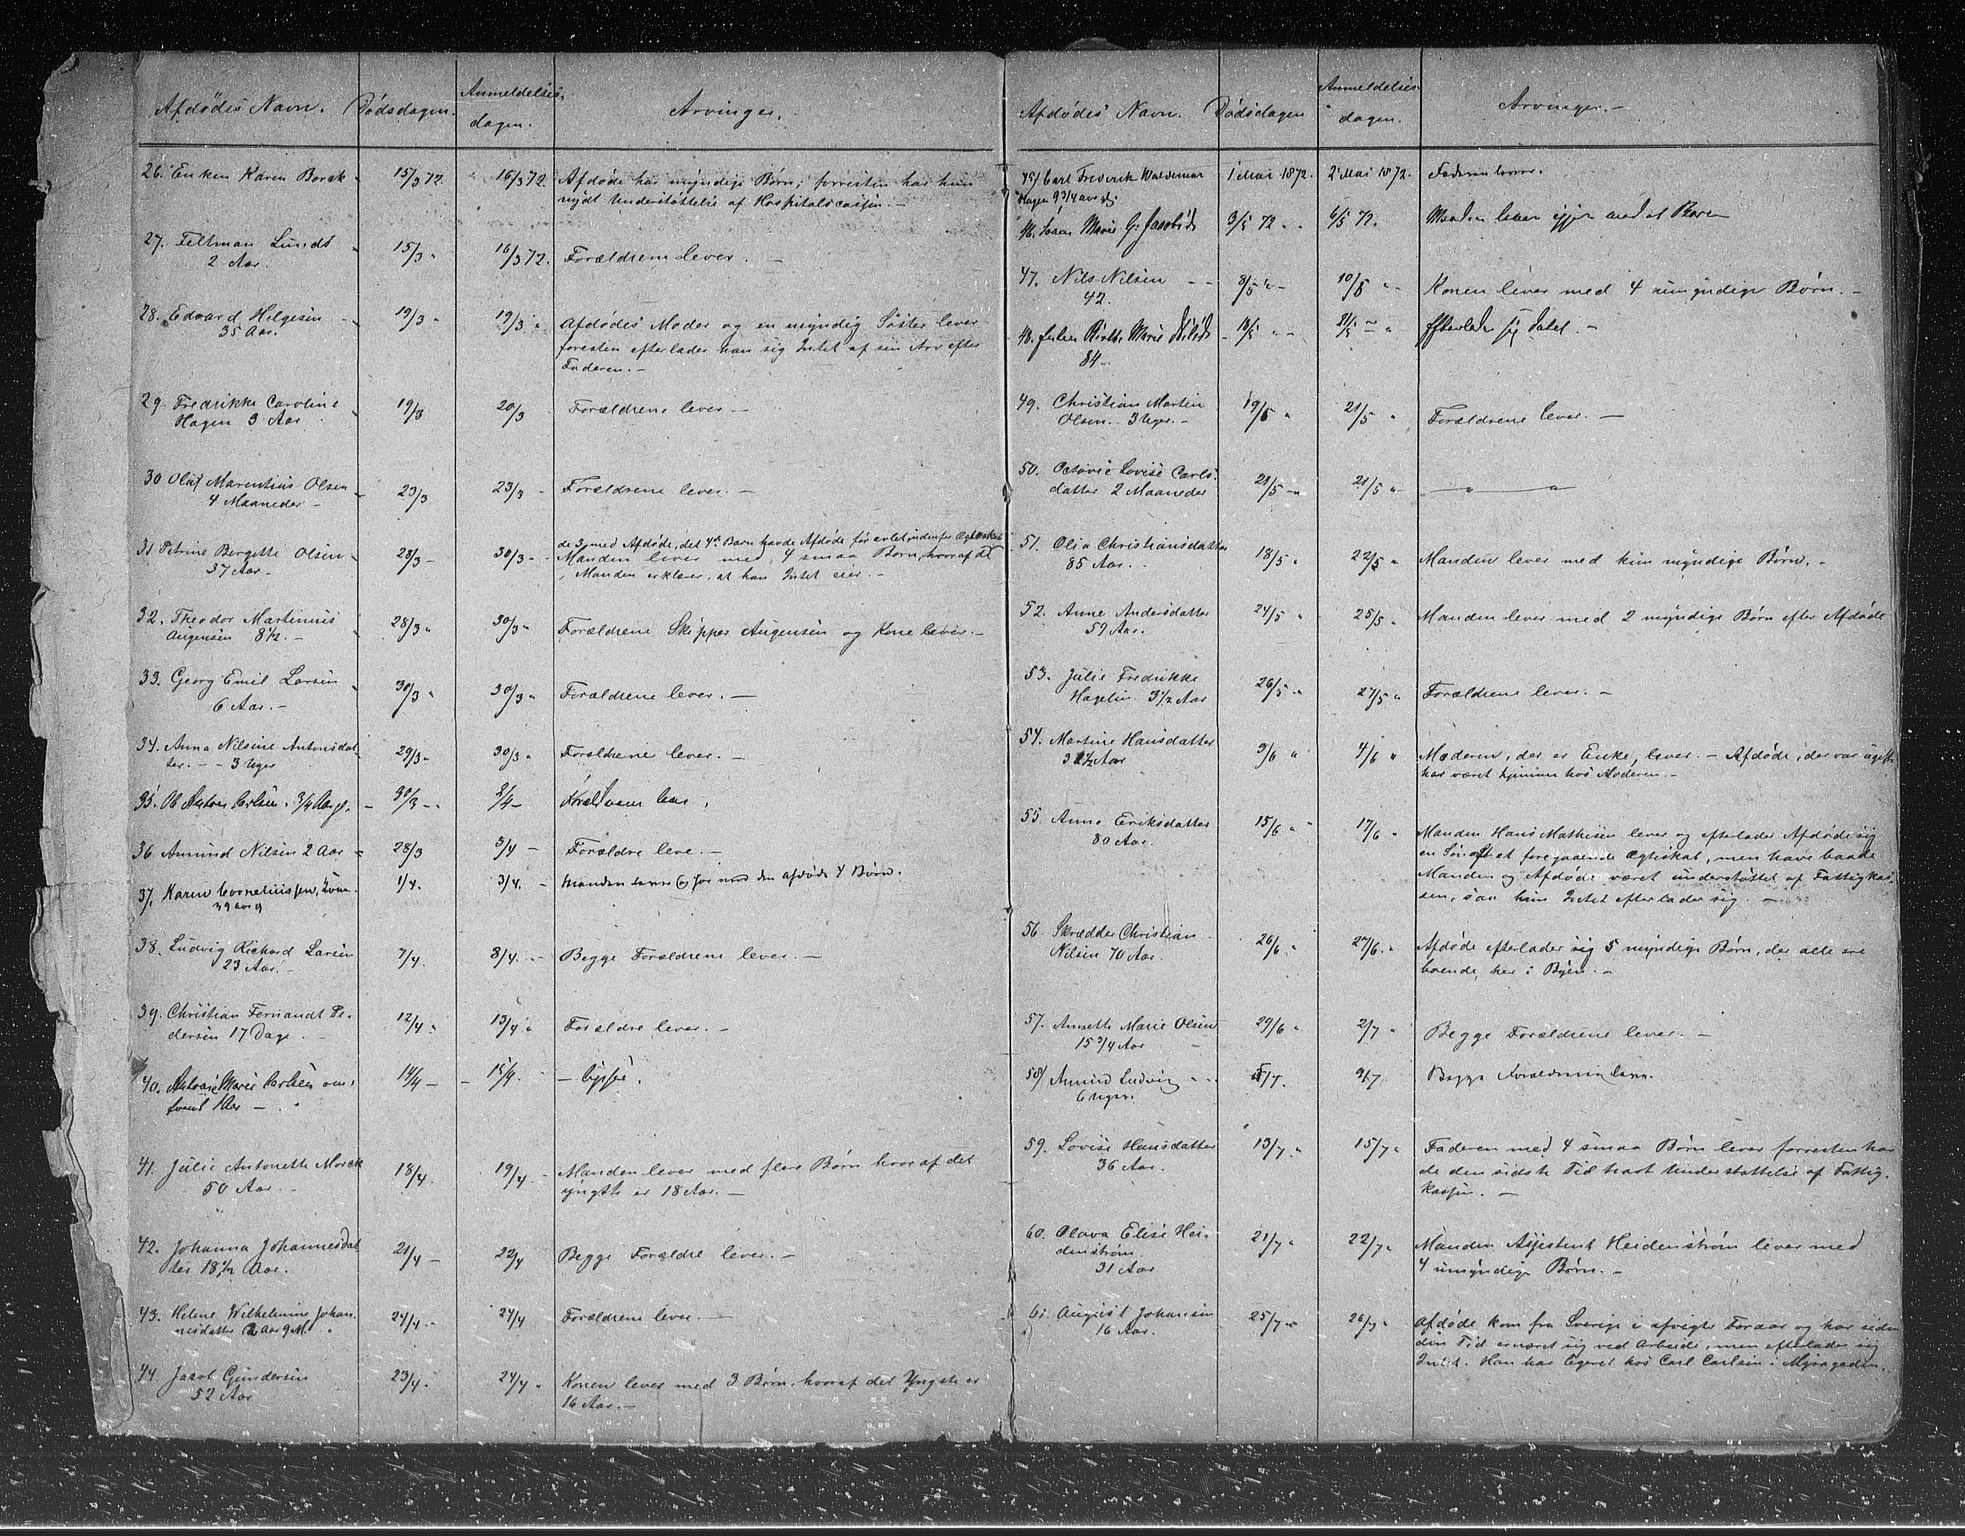 Afdødes Navn. Dødsdagen. Anmeldelses-
dagen. Arvinger.
26. Enken Karen Borck 15/3 72. 16/3 72. Afdøde har myndige Børn; forresten har hun
nydt Understøttelse af Hospitalscassen. -
27. Feltman Lunds 15/3 " 16/3 72. Forældrene lever. -
2 Aar.
28. Edvard Helgesen 19/3 " 19/3 " Afdødes Moder og en myndig Søster lever
35 Aar.
foresten efterlader han sig Intet af sin Arv efter
Faderen. -
29. Fredrikke Caroline 19/3 20/3 Forældrene lever. -
Hagen 3 Aar
30 Oluf Marentius Olsen 23/3 23/3 - Forældrene lever. -
4 Maaneder -
de 3 med Afdøde, det 4de Barn havde Afdøde før avlet udenfor Ægteskab
31 Petrine Bergette Olsen 28/3 - 30/3 - Manden lever med 4 smaa Børn, hvoraf
37 Aar. -
Manden erklærer, at han Intet eier. -
32. Theodor Martinius 28/3 " 30/3 " Forældrene Skipper Augensen og Kone lever. -
Augensen 8 1/2. -
33. Georg Emil Larsen 30/3 " 30/3 " Forældrene lever. -
6 Aar. -
34. Anna Nilsine Antonsdat- 29/3 " 30/3 " Forældrene lever. -
ter. - - 3 Uger
35. Ole Carlsen. 3/4 Aar 30/3 - 2/4 -
36 Amund Nilsen 2 Aar 28/3 3/4 - Forældre leve. -
37. Karen Corneliussen, 1/4. 3/4. - Manden med den afdøde 4 Børn.
39 aar
38. Ludvig Richard Larsen 7/4. 8/4. - Begge Forældrene lever. -
23 Aar. -
39. Christian Fernandt Pe- 12/4 " 13/4 " Forældre lever. -
dersen 17 Dage
40. Marie Carlsen om- 14/4 - 15/4. -
trent 1 Aar -
41. Julie Antonette Morck 18/4 19/4 - Manden lever med flere Børn hvoraf det
50 Aar. -
yngste er 18 Aar. -
42. Johanna Johannesdat 21/4 - 22/4 Begge Forældre lever. -
ter 18 1/2 Aar.
43. Heline Wilhelmine Johan- 24/4 - 24/4 Forældrene lever. -
nesdatter 2 Aar 9 M.
44. Jacob Gundersen 23/4. 24/4 " Konen lever med 3 Børn, hvoraf det Yngste er
52 Aar
16 Aar. -
Afdødes Navn. Dødsdagen Anmeldelses-
dagen. Arvinger. -
45/ Carl Frederik Waldemar 1 Mai 1872. 2 Mai 1872. Faderen lever.
Hagen 9 3/4 aar
46. Marie G. Jacobsd 3/5 72 6/5 72. Manden lever igjen med et Barn
47. Nils Nilsen - - 8/5 " - 10/5 " - Konen lever med 4 umyndige Børn. -
42.
48. Marie 84 - Efterlader sig Intet. -
49. Christian Martin 19/5 " 21/5 " Forældrene lever. -
Olsen. 3 Uger. -
50. Octavie Lovise Carls- 21/5 - " 21/5 " - - " - "
datter 2 Maaneder
51. Olia Christiansdatter 18/5 " 22/5 " Manden lever med kun myndige Børn. -
85 Aar. -
52. Anne Andersdatter 24/5 " 25/5 " Manden lever med 2 myndige Børn efter Afdøde
59 Aar.
53. Julie Fredrikke 26/5 " 27/5 " Forældrene lever. -
Hagelin 3 1/2 Aar
54. Martine Hansdatter 3/6 " 4/6 " Moderen, der er Enke, lever. - Afdøde, der var ugift,
Aar
har været hjemme hos Moderen. -
55 Anne Eriksdatter 15/6 " 17/6 " Manden Hans Mathisen lever og efterlader Afdøde sig
80 Aar.
en Søn af et foregaaende Ægteskab, men have baade
Manden og Afdøde været understøttet af Fattigkas-
sen, saa hun Intet efterlader sig. -
56. Skrædder Christian 26/6 " 27/6. " Afdøde efterlader sig 5 myndige Børn, der alle ere
Nilsen 70 Aar.
boende her i Byen. -
57. Annette Marie Olsen 29/6 " 2/7 " Begge Forældrene lever. -
15 3/4 Aar
58/ Amund Ludvig - - 5/7. 9/7 Begge Forældrene lever.
6 Uger.
59. Lovise Hansdatter 13/7. " 15/7 " Faderen med 4 smaa Børn lever forresten har
36 Aar.
de den sidste Tid havt Understøttelse af Fattig-
kassen. -
60. Olava Elise Hei- 21/7 " 22/7 " Manden Assistent Heidenstrøm lever med
denstrøm
31 Aar
4 umyndige Børn. -
61. August Johansen 25/7 " 26/7 " Afdøde kom fra Sverige i afvigte Foraar og har siden
16 Aar.
den Tid ernæret sig ved Arbeide, men efterlader sig
Intet. Han har logeret hos Carl Carlsen i Myragaden.